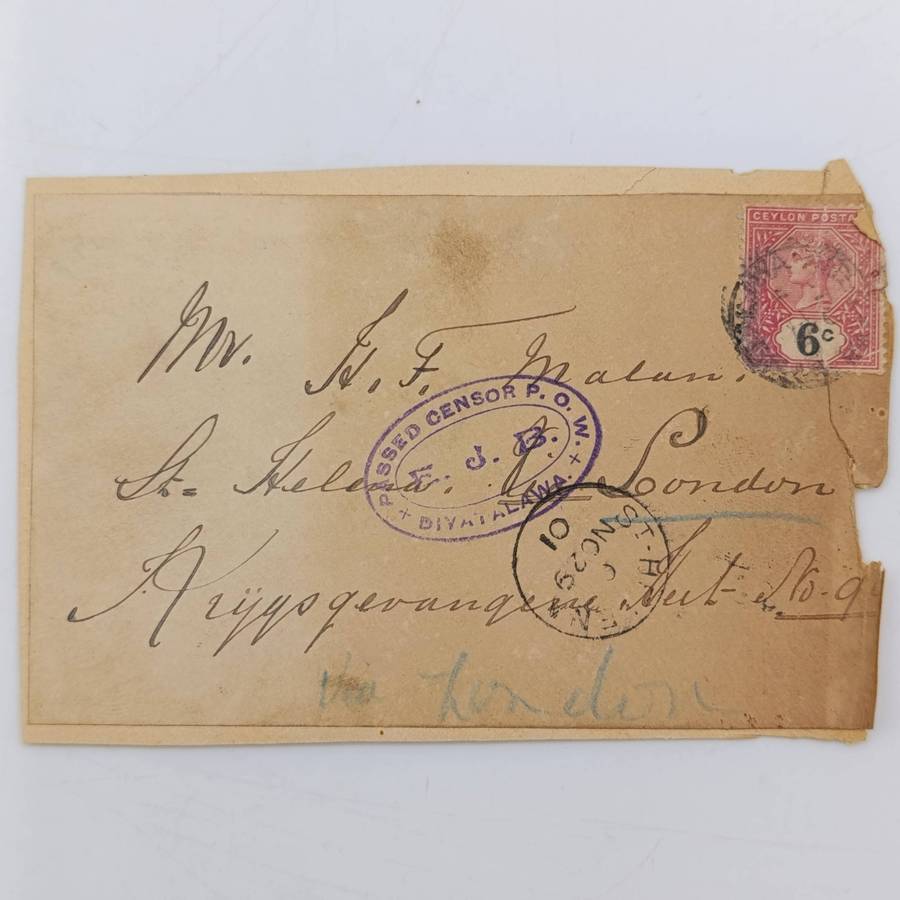 CEYLON POSTA
6c
Mr. H. F. Malan.
PASSED CENSOR P. O. W.
E. J. B.
DIYATALAWA.
St= Helena. via London
ST. HELENA
C
NO 29
01
Krijgsgevangene Hut No. 9
via London